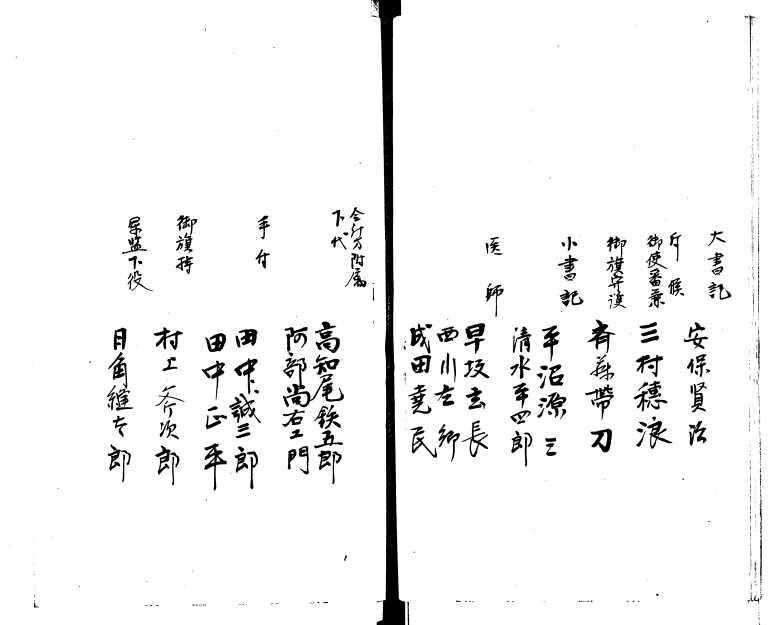 大書記
安保賢治
斥候
御使番兼
三村穂浪
御旗守護
斉藤帯刀
小書記
平沼源三
清水平四郎
医師
早坂玄長
西川左卿
成田尭民
会計方附属
下代
高知尾鉄五郎
阿部尚右エ門
手付
田中誠三郎
田中正平
御旗持
村上斧次郎
器監下役
目角縫太郎